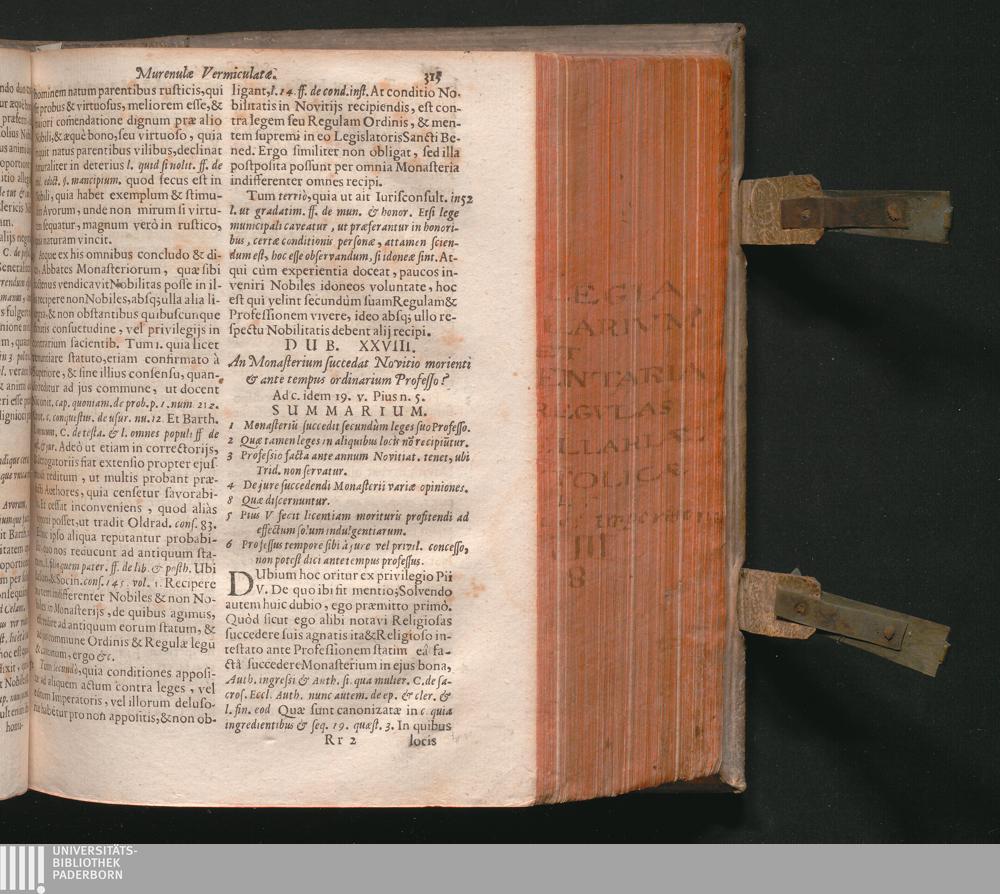 Murenulæ Vermiculatæ.
315
hominem natum parentibus rusticis, qui
probus & virtuosus, meliorem esse, &
comẽdatione dignum præ alio
Nobili, & æquè bono, seu virtuoso, quia
natus parentibus vilibus, declinat
in deterius l. quid si nolit. ff. de
edict. §. mancipium. quod secus est in
quia habet exemplum & stimu-
Avorum, unde non mirum si virtu-
sequatur, magnum verò in rustico,
naturam vincit.
ex his omnibus concludo & di-
Abbates Monasteriorum, quæ sibi
vendicavit Nobilitas posse in il-
recipere non Nobiles, absq; ulla alia li-
& non obstantibus quibuscunque
consuetudine, vel privilegijs in
contrarium facientib. Tum 1. quia licet
statuto, etiam confirmato à
& sine illius consensu, quan-
ad jus commune, ut docent
cap. quoniam. de prob. p. 1. num. 212.
c. conquestus. de usur. nu. 12. Et Barth.
C. de testa. & l. omnes populi ff de
Adeò ut etiam in correctorijs,
fiat extensio propter ejus
reditum, ut multis probant præ-
Authores, quia censetur favorabi-
cessat inconveniens, quod aliàs
posset, ut tradit Oldrad. cons. 83.
ipso aliqua reputantur probabi-
quo nos reducunt ad antiquum sta-
pater. ff. de lib. & posth. Ubi
& Socin. cons. 145. vol. 1. Recipere
indifferenter Nobiles & non No-
in Monasterijs, de quibus agimus,
ad antiquum eorum statum, &
commune Ordinis & Regulæ legũ
ergo &c.
Tum secundò, quia conditiones apposi-
ad aliquem actum contra leges, vel
Imperatoris, vel illorum deluso-
habẽtur pro non appositis, & non ob-
ligant, l. 14. ff. de cond. inst. At conditio No-
bilitatis in Novitijs recipiendis, est con-
tra legem seu Regulam Ordinis, & men-
tem supremi in eo Legislatoris Sancti Be-
ned. Ergo similiter non obligat, sed illa
postposita possunt per omnia Monasteria
indifferenter omnes recipi.
Tum terriò, quia ut ait Iurisconsult. in 52
l. ut gradatim. ff. de mun. & honor. Etsi lege
municipali caveatur, ut præferantur in honori-
bus, certæ conditionis personæ, attamen scien-
dum est, hoc esse observandum, si idoneæ sint. At-
qui cùm experientia doceat, paucos in-
veniri Nobiles idoneos voluntate, hoc
est qui velint secundùm suam Regulam &
Professionem vivere, ideo absq; ullo re-
spectu Nobilitatis debent alij recipi.
DUB. XXVIII.
An Monasterium succedat Novitio morienti
& ante tempus ordinarium Professo?
Ad c. idem 19. v. Pius n. 5.
SUMMARIUM.
1 Monasteriũ succedit secundùm leges suo Professo.
2 Quæ tamen leges in aliquibus locis nõ recipiũtur.
3 Professio facta ante annum Novitiat. tenet, ubi
Trid. non servatur.
4 De jure succedendi Monasterii variæ opiniones.
8 Quæ discernuntur.
5 Pius V fecit licentiam morituris profitendi ad
effectum solum indulgentiarum.
6 Professus tempore sibi à jure vel privil. concesso,
non potest dici ante tempus professus.
DUbium hoc oritur ex privilegio Pii
V. De quo ibi fit mentio; Solvendo
autem huic dubio, ego præmitto primò.
Quòd sicut ego alibi notavi Religiosas
succedere suis agnatis ita & Religioso in-
testato ante Professionem statim eâ fa-
ctâ succedere Monasterium in ejus bona,
Auth. ingressi & Auth. si. qua mulier. C. de sa-
cros. Eccl. Auth. nunc autem. de ep. & cler. &
l. fin. eod Quæ sunt canonizatæ in c. quia
ingredientibus & seq. 19. quæst. 3. In quibus
Rr 2
locis
LEGIA
LARIVM
ET
ENTARIA
REGVLAS
OLICÆ
VIII
8
UNIVERSITÄTS-
BIBLIOTHEK
PADERBORN